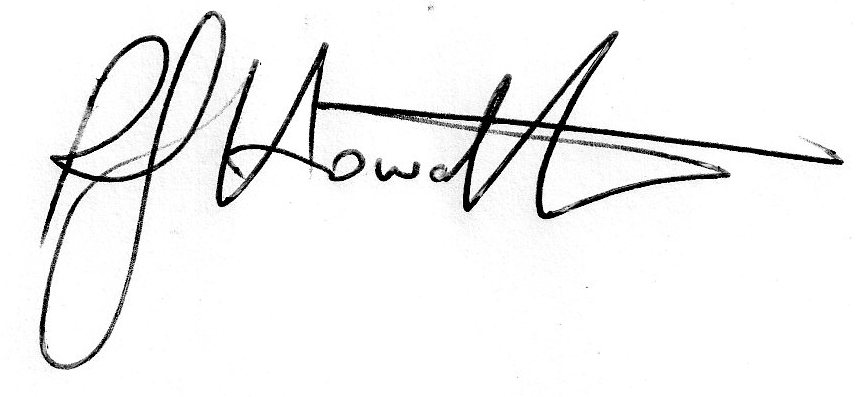 PJ Howatt